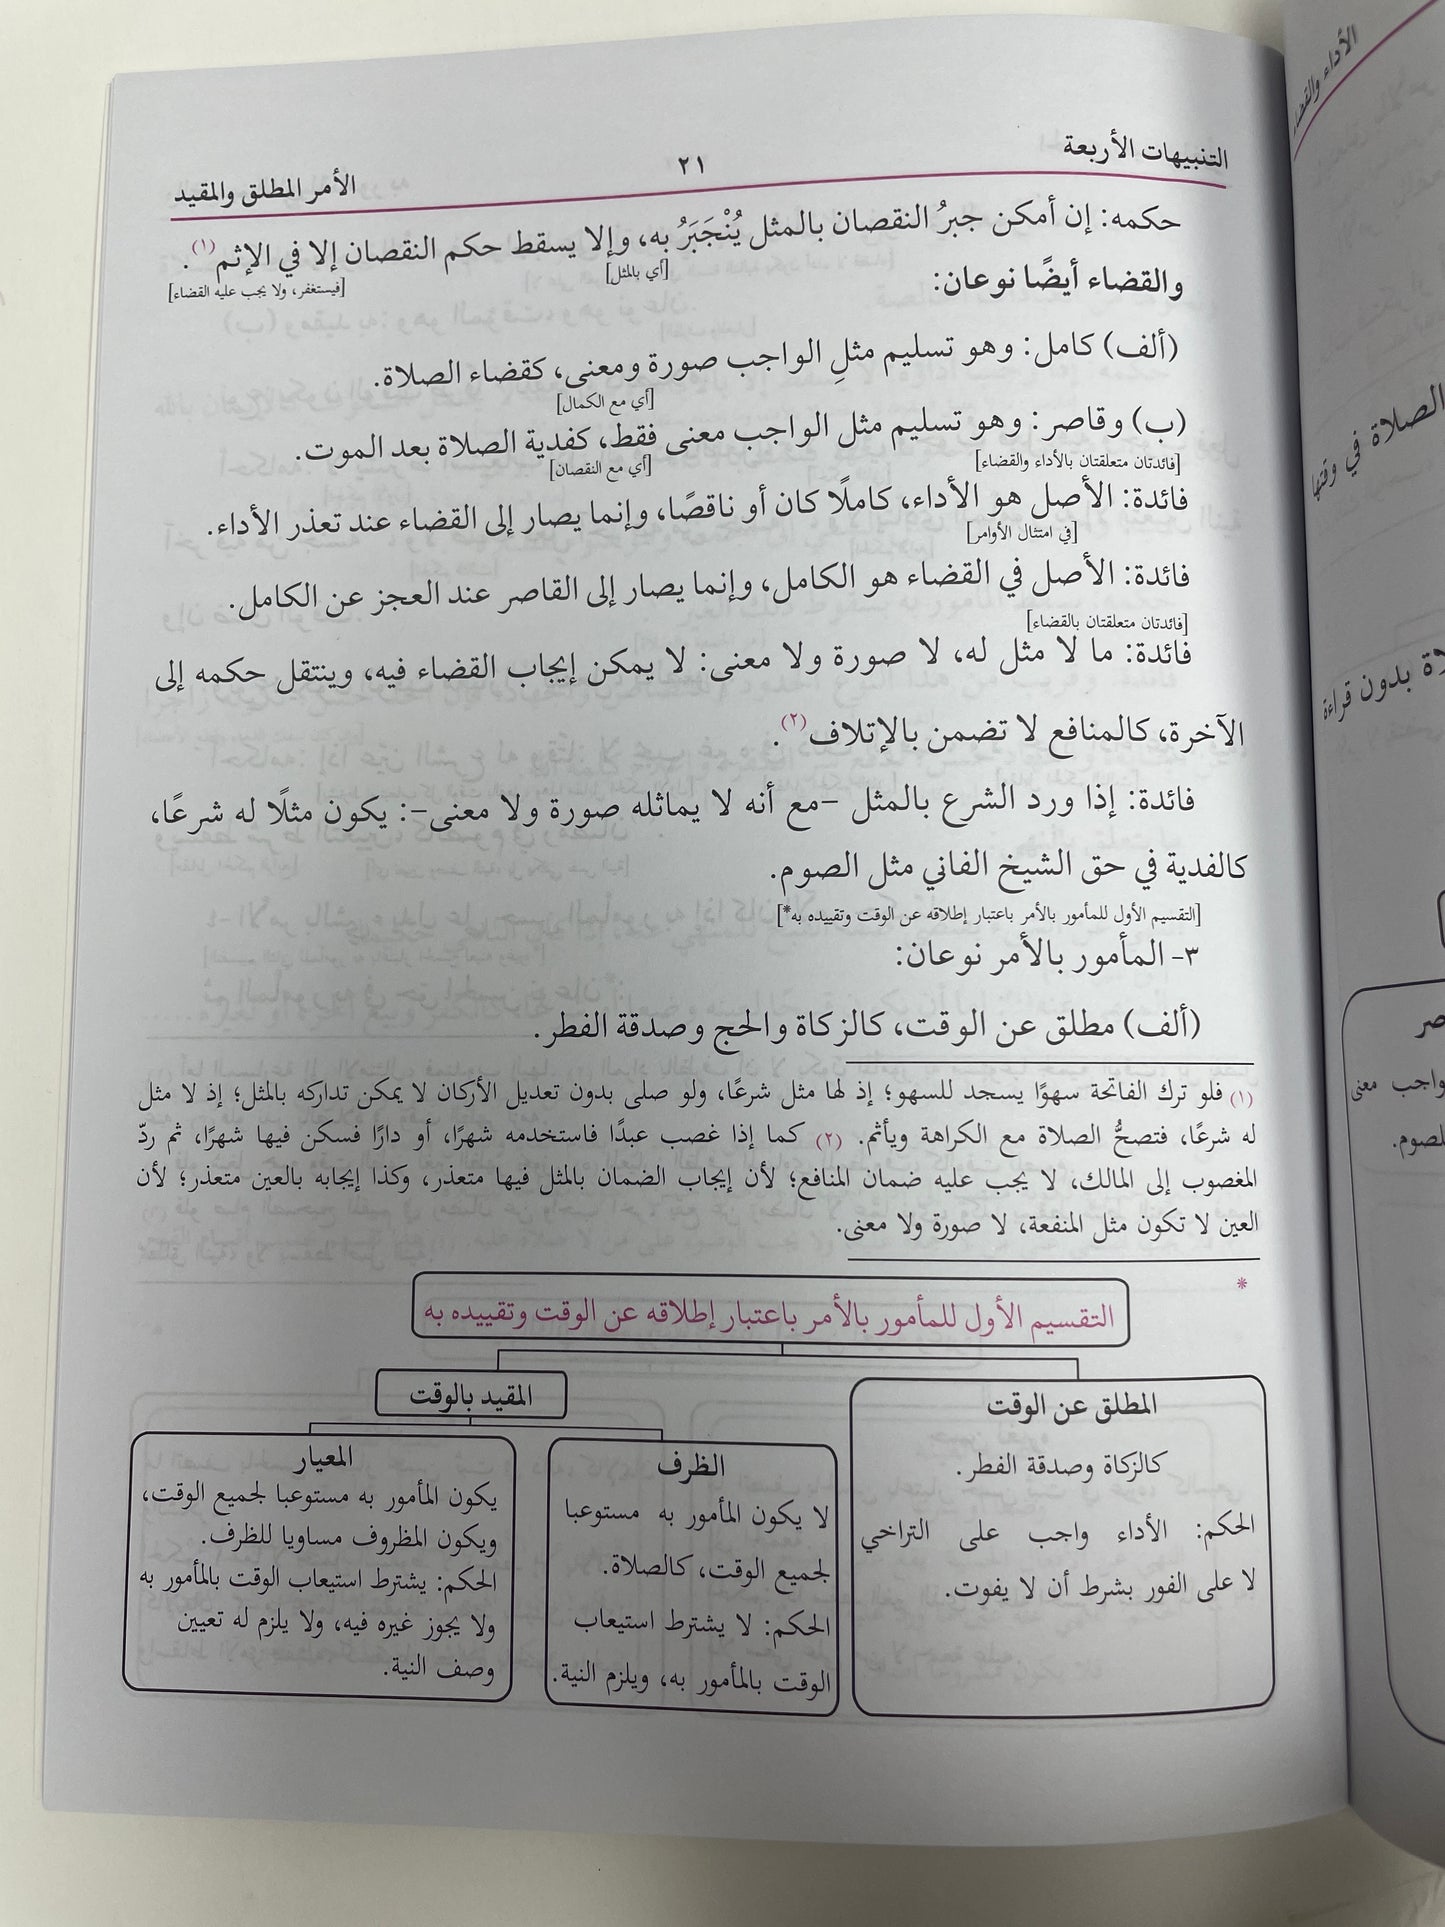 التنبيهات الأربعة
٢١
الأمر المطلق والمقيد
حكمه: إن أمكن جبرُ النقصان بالمثل يُنْجَبَرُ به، وإلا يسقط حكم النقصان إلا في الإثم(١).
[أي بالمثل]
[فيستغفر، ولا يجب عليه القضاء]
والقضاء أيضًا نوعان:
(ألف) كامل: وهو تسليم مثلِ الواجب صورة ومعنى، كقضاء الصلاة.
[أي مع الكمال]
(ب) وقاصر: وهو تسليم مثل الواجب معنى فقط، كفدية الصلاة بعد الموت.
[فائدتان متعلقتان بالأداء والقضاء]
[أي مع النقصان]
فائدة: الأصل هو الأداء، كاملًا كان أو ناقصًا، وإنما يصار إلى القضاء عند تعذر الأداء.
[في امتثال الأوامر]
فائدة: الأصل في القضاء هو الكامل، وإنما يصار إلى القاصر عند العجز عن الكامل.
[فائدتان متعلقتان بالقضاء]
فائدة: ما لا مثل له، لا صورة ولا معنى: لا يمكن إيجاب القضاء فيه، وينتقل حكمه إلى
الآخرة، كالمنافع لا تضمن بالإتلاف(٢).
فائدة: إذا ورد الشرع بالمثل -مع أنه لا يماثله صورة ولا معنى-: يكون مثلًا له شرعًا،
كالفدية في حق الشيخ الفاني مثل الصوم.
[التقسيم الأول للمأمور بالأمر باعتبار إطلاقه عن الوقت وتقييده به*]
٣- المأمور بالأمر نوعان:
(ألف) مطلق عن الوقت، كالزكاة والحج وصدقة الفطر.
(١) فلو ترك الفاتحة سهوًا يسجد للسهو؛ إذ لها مثل شرعًا، ولو صلى بدون تعديل الأركان لا يمكن تداركه بالمثل؛ إذ لا مثل
له شرعًا، فتصحُّ الصلاة مع الكراهة ويأثم. (٢) كما إذا غصب عبدًا فاستخدمه شهرًا، أو دارًا فسكن فيها شهرًا، ثم ردّ
المغصوب إلى المالك، لا يجب عليه ضمان المنافع؛ لأن إيجاب الضمان بالمثل فيها متعذر، وكذا إيجابه بالعين متعذر؛ لأن
العين لا تكون مثل المنفعة، لا صورة ولا معنى.
*
التقسيم الأول للمأمور بالأمر باعتبار إطلاقه عن الوقت وتقييده به
المطلق عن الوقت
كالزكاة وصدقة الفطر.
الحكم: الأداء واجب على التراخي
لا على الفور بشرط أن لا يفوت.
المقيد بالوقت
الظرف
لا يكون المأمور به مستوعبا
لجميع الوقت، كالصلاة.
الحكم: لا يشترط استيعاب
الوقت بالمأمور به، ويلزم النية.
المعيار
يكون المأمور به مستوعبا لجميع الوقت،
ويكون المظروف مساويا للظرف.
الحكم: يشترط استيعاب الوقت بالمأمور به
ولا يجوز غيره فيه، ولا يلزم له تعيين
وصف النية.
الأداء والقضاء
الصلاة في وقتها
بدون قراءة
واجب معنى